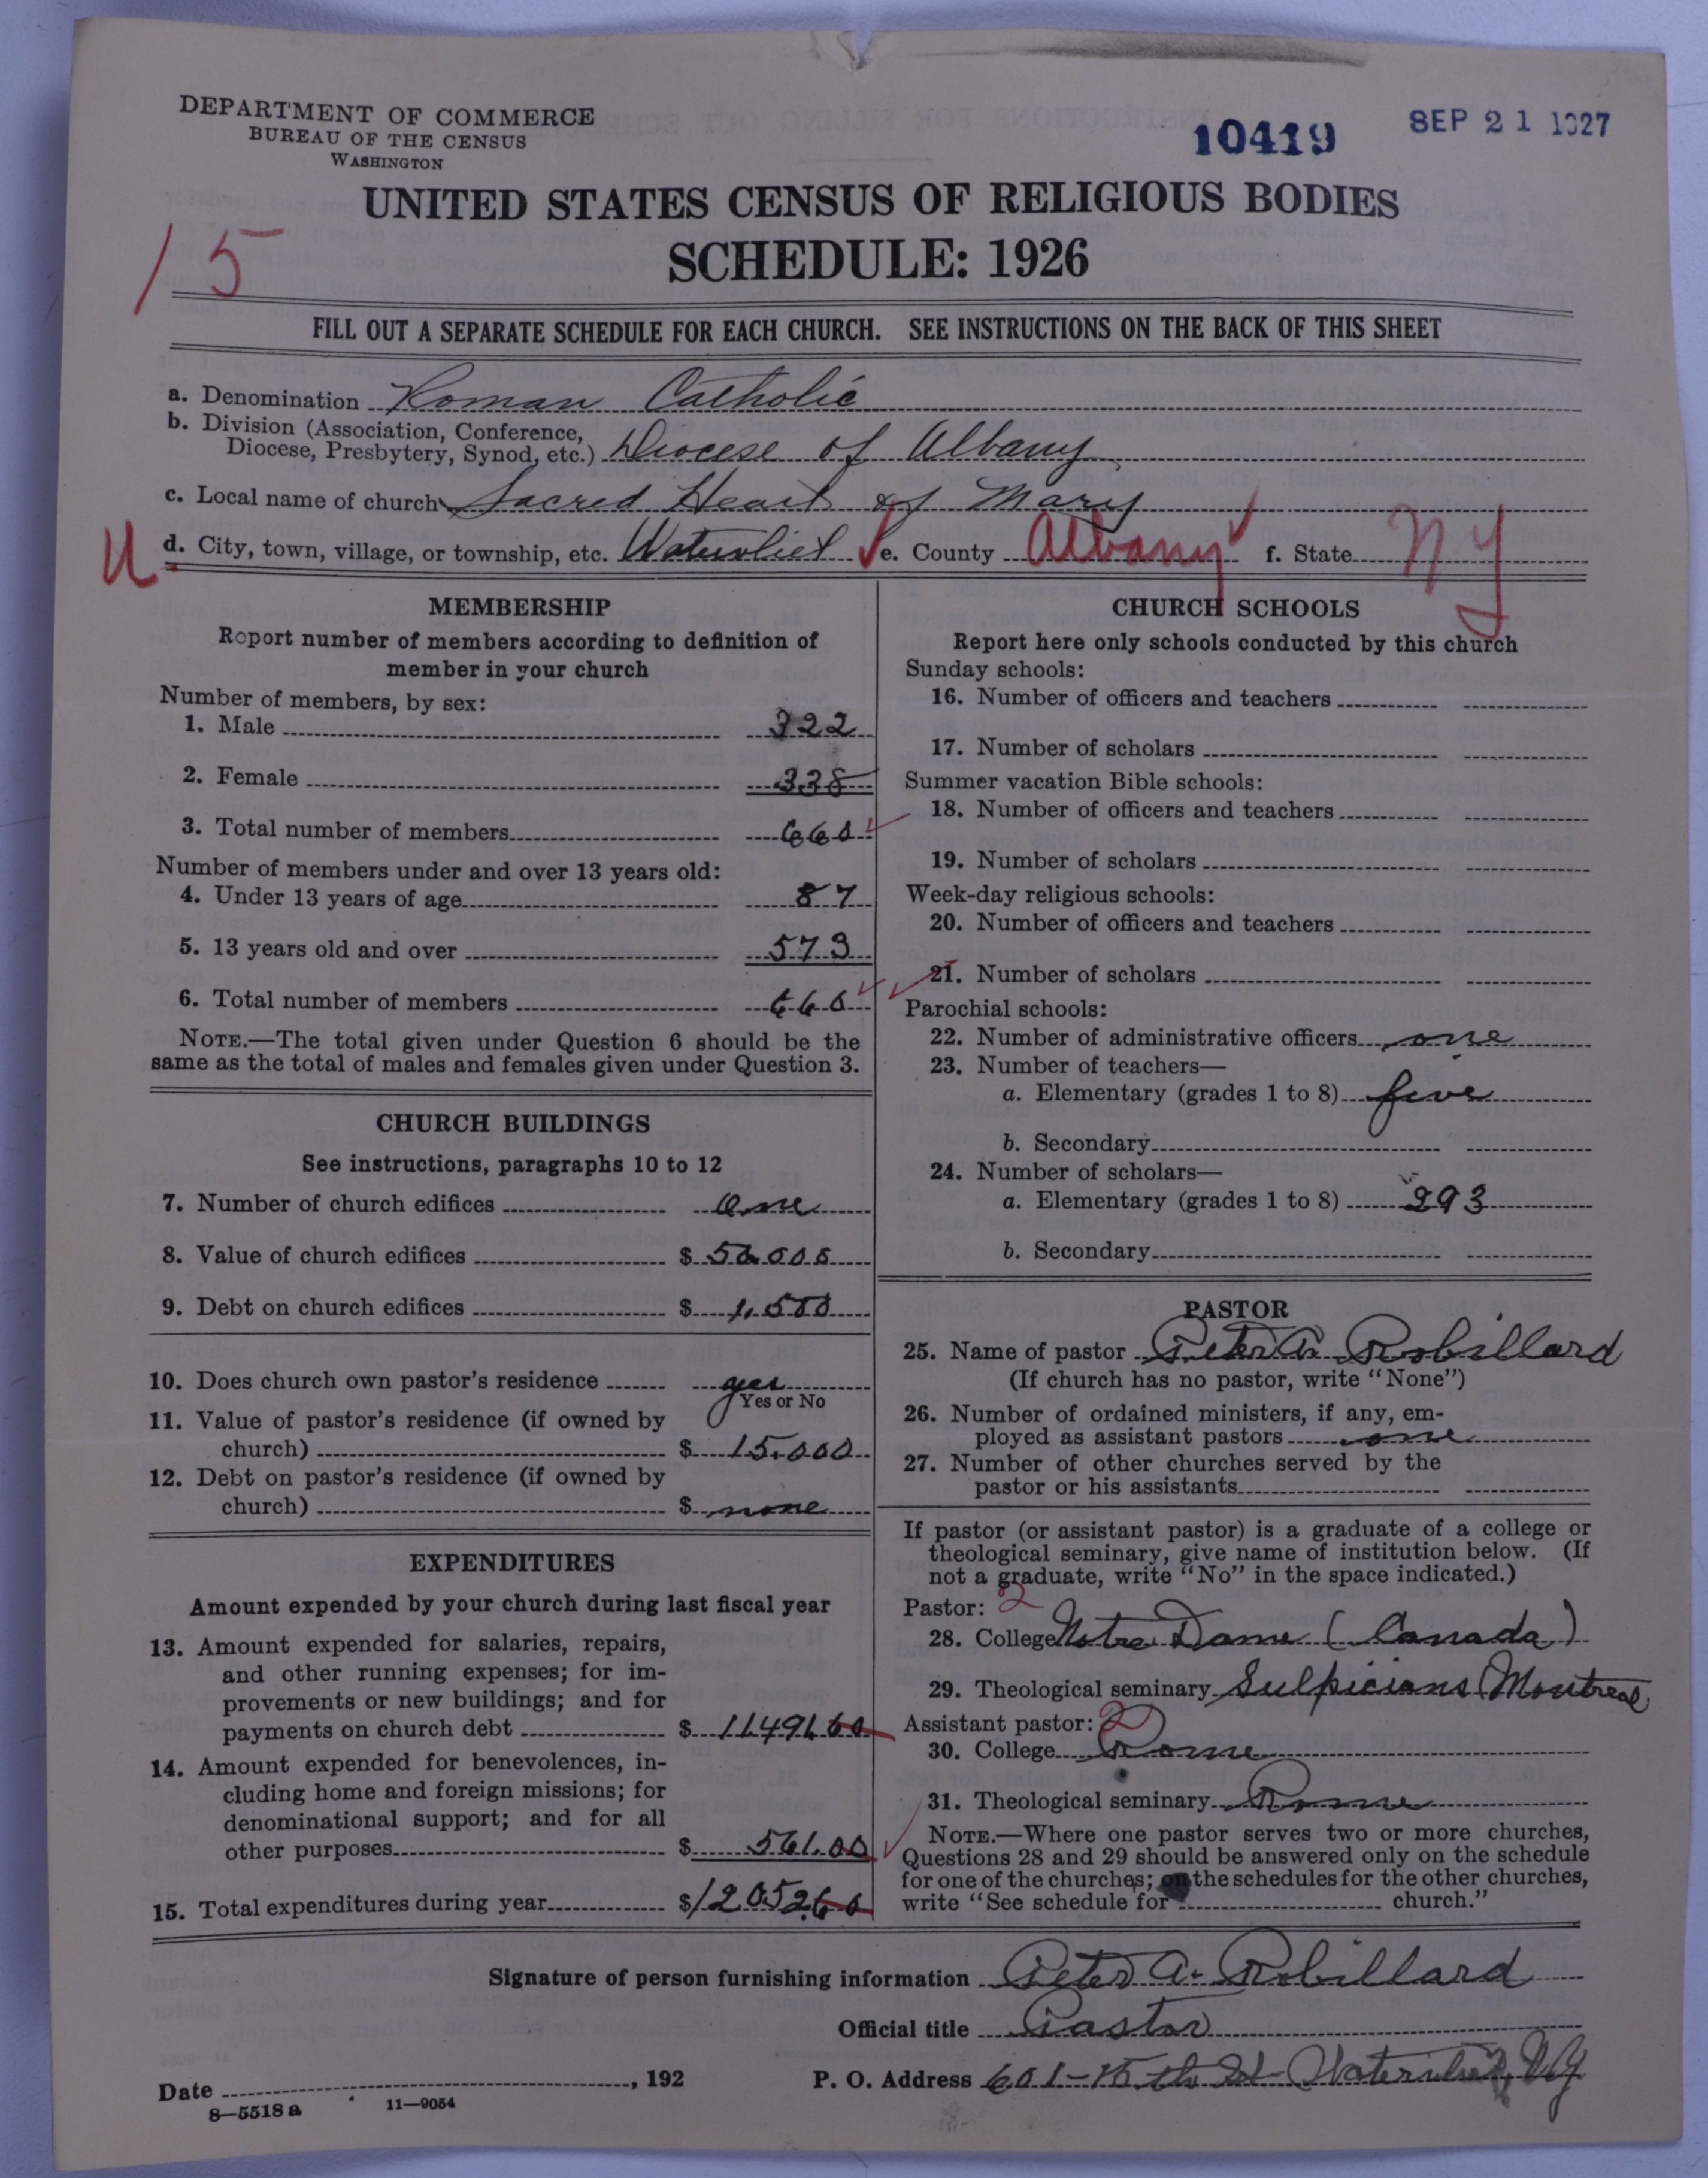 DEPARTMENT OF COMMERCE
BUREAU OF THE CENSUS
WASHINGTON
10419
SEP 21 1927
UNITED STATES CENSUS OF RELIGIOUS BODIES
SCHEDULE: 1926
15
FILL OUT A SEPARATE SCHEDULE FOR EACH CHURCH. SEE INSTRUCTIONS ON THE BACK OF THIS SHEET
a. Denomination Roman Catholic
b. Division (Association, Conference,
Diocese, Presbytery, Synod, etc.) Diocese of Albany
c. Local name of church Sacred Heart of Mary
U d. City, town, village, or township, etc. Watervliet e. County Albany f. State NY
MEMBERSHIP
Report number of members according to definition of
member in your church
Number of members, by sex:
1. Male 322
2. Female 338
3. Total number of members 660
Number of members under and over 13 years old:
4. Under 13 years of age 87
5. 13 years old and over 573
6. Total number of members 660
NOTE.—The total given under Question 6 should be the
same as the total of males and females given under Question 3.
CHURCH BUILDINGS
See instructions, paragraphs 10 to 12
7. Number of church edifices One
8. Value of church edifices $ 50.000
9. Debt on church edifices $ 1,500
10. Does church own pastor's residence yes
Yes or No
11. Value of pastor's residence (if owned by
church) $ 15.000
12. Debt on pastor's residence (if owned by
church) $ none
EXPENDITURES
Amount expended by your church during last fiscal year
13. Amount expended for salaries, repairs,
and other running expenses; for im-
provements or new buildings; and for
payments on church debt $ 11491.60
14. Amount expended for benevolences, in-
cluding home and foreign missions; for
denominational support; and for all
other purposes $ 561.00
15. Total expenditures during year $ 12052.60
CHURCH SCHOOLS
Report here only schools conducted by this church
Sunday schools:
16. Number of officers and teachers
17. Number of scholars
Summer vacation Bible schools:
18. Number of officers and teachers
19. Number of scholars
Week-day religious schools:
20. Number of officers and teachers
21. Number of scholars
Parochial schools:
22. Number of administrative officers one
23. Number of teachers—
a. Elementary (grades 1 to 8) five
b. Secondary
24. Number of scholars—
a. Elementary (grades 1 to 8) 293
b. Secondary
PASTOR
25. Name of pastor Peter A. Robillard
(If church has no pastor, write "None")
26. Number of ordained ministers, if any, em-
ployed as assistant pastors one
27. Number of other churches served by the
pastor or his assistants
If pastor (or assistant pastor) is a graduate of a college or
theological seminary, give name of institution below. (If
not a graduate, write "No" in the space indicated.)
Pastor: 2
28. College Notre Dame (Canada)
29. Theological seminary Sulpicians Montreal
Assistant pastor: 2
30. College Rome
31. Theological seminary Rome
NOTE.—Where one pastor serves two or more churches,
Questions 28 and 29 should be answered only on the schedule
for one of the churches; on the schedules for the other churches,
write "See schedule for church."
Signature of person furnishing information Peter A. Robillard
Official title Pastor
Date , 192
P. O. Address 601-15th St- Watervliet, NY
8—5518 a 11—9054